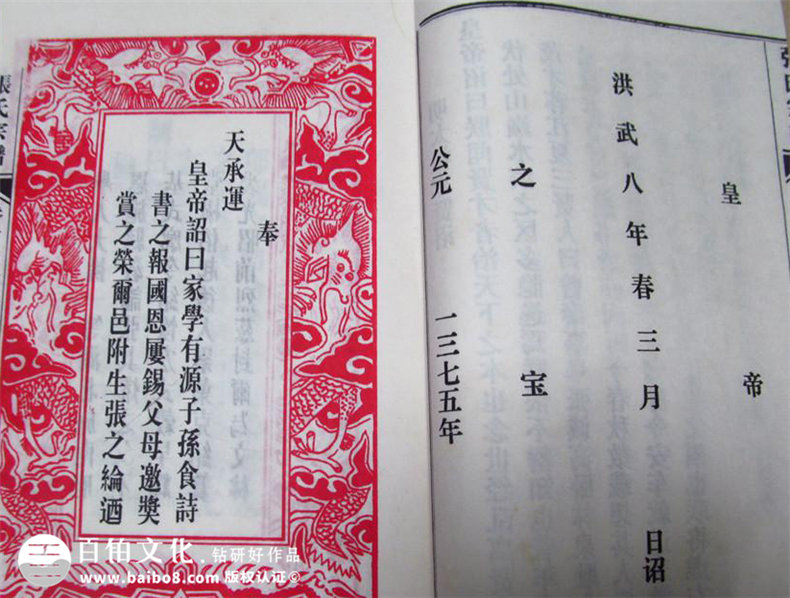 皇帝
洪武八年春三月 日诏
之宝
公元 一三七五年
奉
天承運
皇帝詔曰家學有源子孫食詩
書之報國恩屢錫父母邀獎
賞之榮爾邑附生張之綸迺
張氏宗譜
百伯文化 钻研好作品
www.baibo8.com 版权认证©